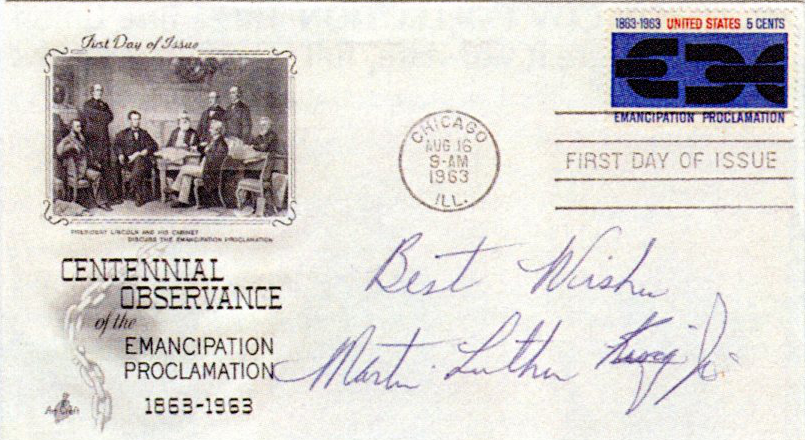 First Day of Issue
PRESIDENT LINCOLN AND HIS CABINET
DISCUSS THE EMANCIPATION PROCLAMATION
CENTENNIAL
OBSERVANCE
of the
EMANCIPATION
PROCLAMATION
1863-1963
ArtCraft
CHICAGO
AUG 16
9-AM
1963
ILL.
1863-1963 UNITED STATES 5 CENTS
EMANCIPATION PROCLAMATION
FIRST DAY OF ISSUE
Best Wishes
Martin Luther King Jr.